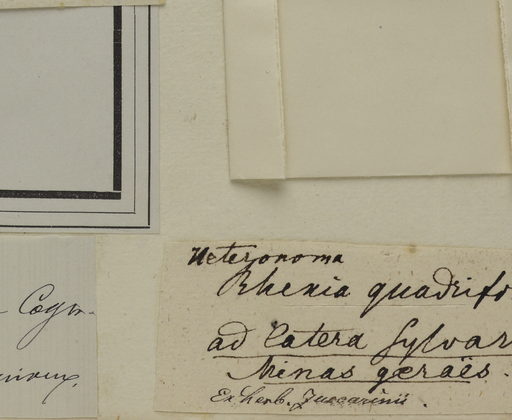 Heteronoma
Rhenia quadrifo
ad latera Sylvar
Minas geraës.
Ex herb. Zuccarinii.
Cogn.